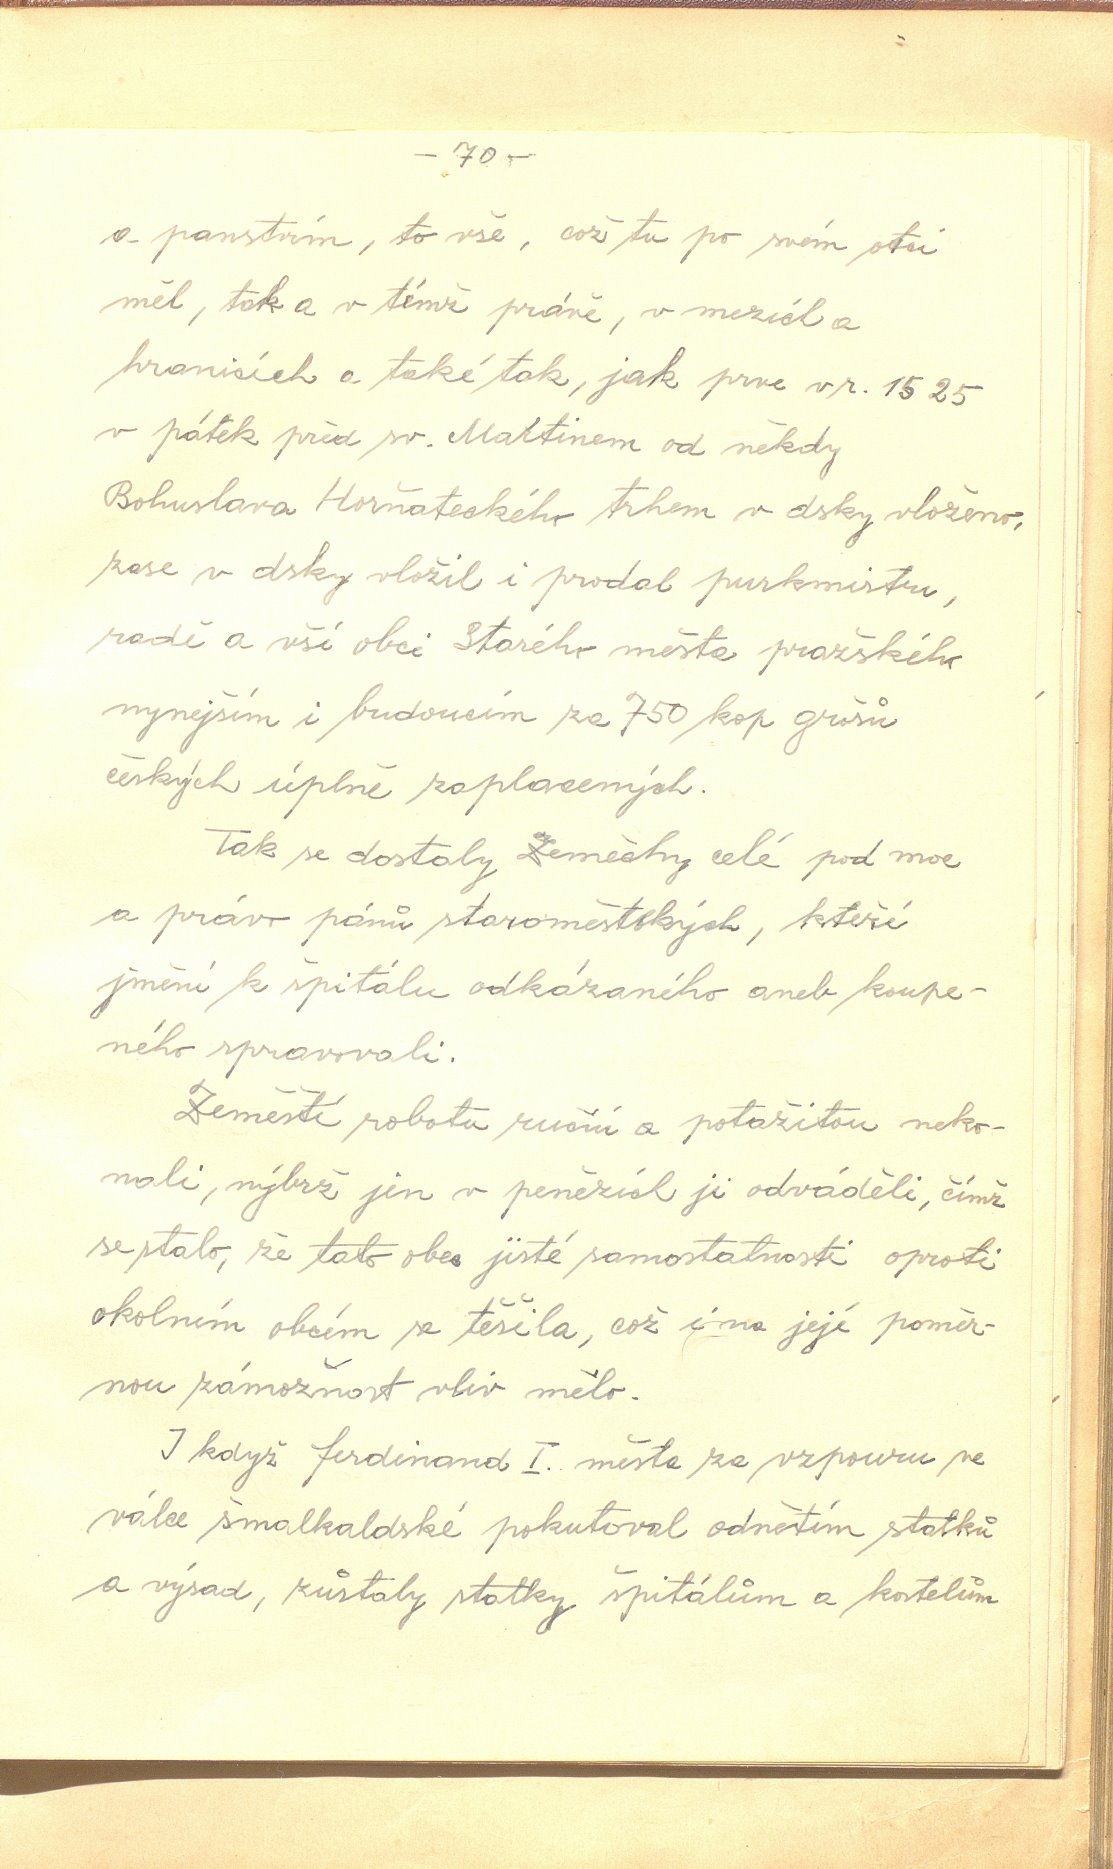 - 70 -
a panstvím, to vše, což tu po svém otci
měl, tak a v témž právě, v mezích a
hranicích a také tak, jak prve v r. 1525
v pátek před sv. Martinem od někdy
Bohuslava Horňateckého trhem v dsky vloženo,
zase v dsky vložil i prodal purkmistru,
radě a vší obci Starého města pražského
nynejším i budoucím za 750 kop grošů
českých úplně zaplacených.
Tak se dostaly Zeměchy celé pod moc
a právo pánů staroměstských, kteří
jmění k špitálu odkázaného aneb koupe-
ného spravovali.
Zeměští robotu ruční a potažitou neko-
nali, nýbrž jen v penězích ji odváděli, čímž
se stalo, že tato obec jisté samostatnosti oproti
okolním obcím se těšila, což i na její poměr-
nou zámožnost vliv mělo.
I když Ferdinand I. města za vzpouru ve
válce šmalkaldské pokutoval odnětím statků
a výsad, zůstaly statky špitálům a kostelům